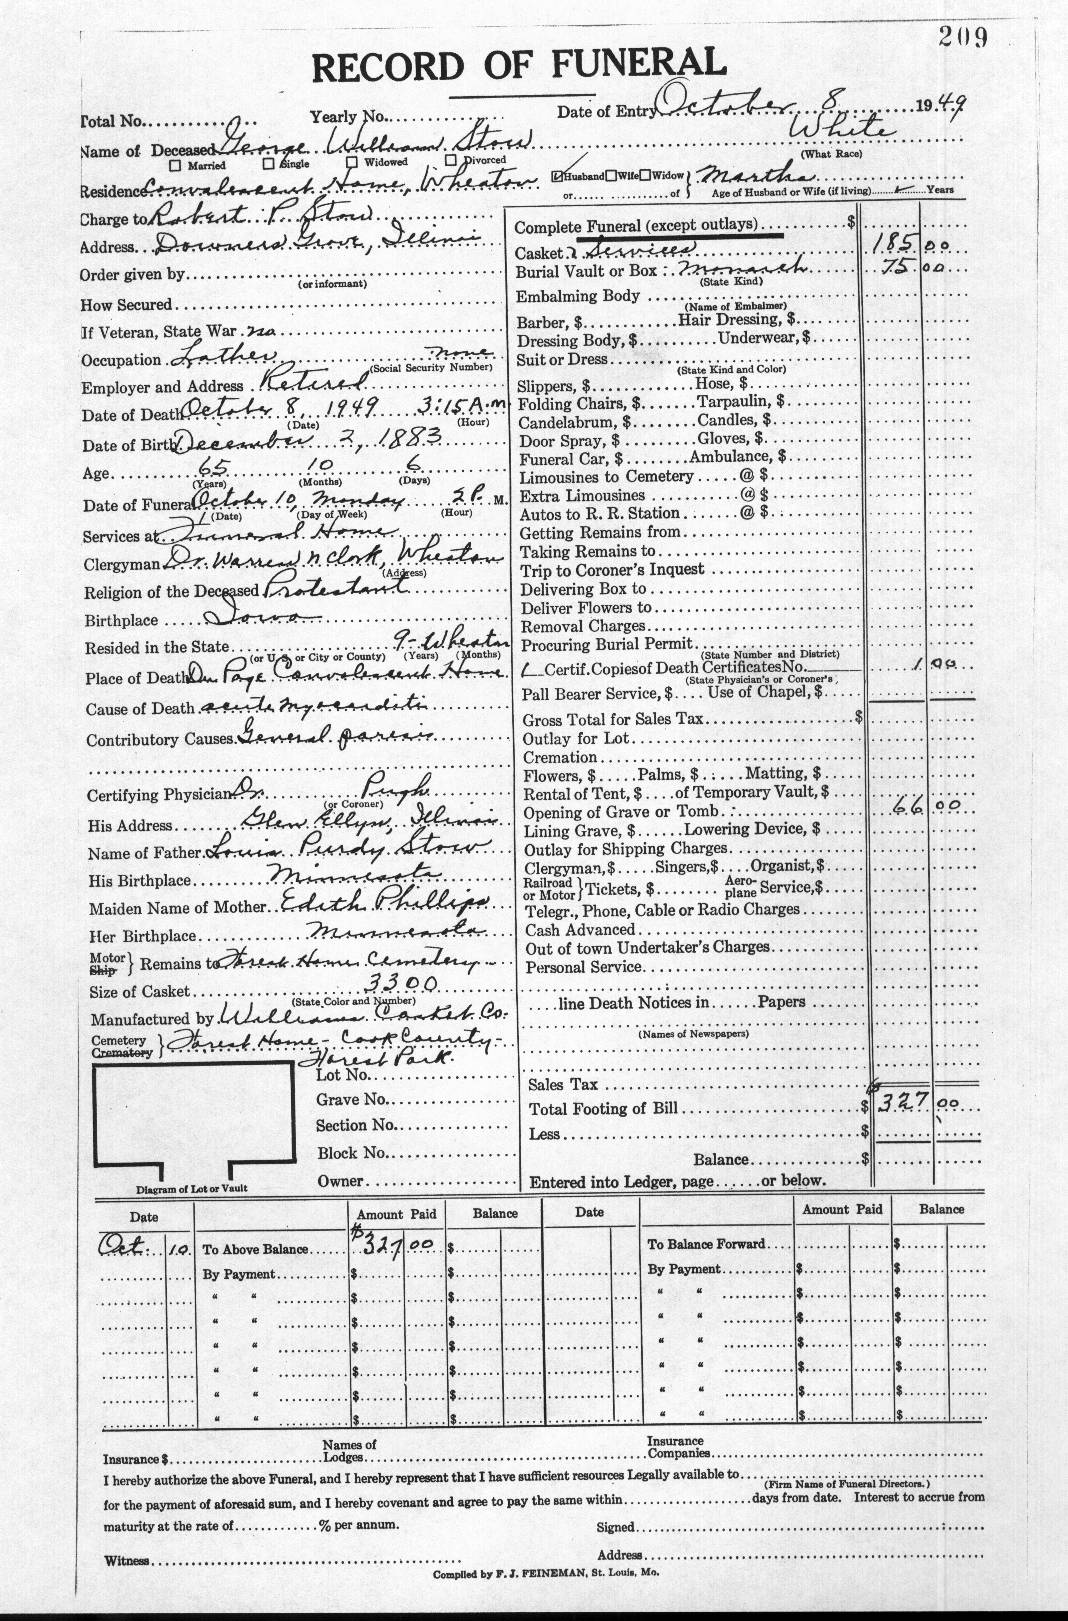 209
RECORD OF FUNERAL
Total No............ Yearly No............... Date of Entry October 8 1949
Name of Deceased George William Stow White
☐ Married ☐ Single ☐ Widowed ☐ Divorced (What Race)
Residence Convalescent Home, Wheaton ☑Husband☐Wife☐Widow} Martha
or.................of} Age of Husband or Wife (if living)......✓......Years
Charge to Robert P. Stow
Address... Downers Grove, Illinois
Order given by
(or informant)
How Secured
If Veteran, State War no
Occupation Lather none
(Social Security Number)
Employer and Address Retired
Date of Death October 8, 1949 3:15 A.m
(Date) (Hour)
Date of Birth December 2, 1883
Age 65 10 6
(Years) (Months) (Days)
Date of Funeral October 10, Monday 2 P. M.
(Date) (Day of Week) (Hour)
Services at Funeral Home
Clergyman Dr. Warren N Clark, Wheaton
(Address)
Religion of the Deceased Protestant
Birthplace Iowa
Resided in the State 9 - Wheaton
(or U.S. or City or County) (Years) (Months)
Place of Death Du Page Convalescent Home
Cause of Death acute myocarditis
Contributory Causes General paresis
Certifying Physician Dr. Pugh
(or Coroner)
His Address Glen Ellyn, Illinois
Name of Father Louis Purdy Stow
His Birthplace Minnesota
Maiden Name of Mother Edith Phillips
Her Birthplace Minnesota
Motor
Ship } Remains to Forest Home Cemetery
Size of Casket 3300
(State Color and Number)
Manufactured by Williams Casket Co.
Cemetery
Crematory } Forest Home - Cook County -
Forest Park.
Lot No.
Grave No.
Section No.
Block No.
Owner
Diagram of Lot or Vault
Complete Funeral (except outlays) $
Casket & Services 185 00
Burial Vault or Box : Monarch 75 00
(State Kind)
Embalming Body
(Name of Embalmer)
Barber, $ Hair Dressing, $
Dressing Body, $ Underwear, $
Suit or Dress
(State Kind and Color)
Slippers, $ Hose, $
Folding Chairs, $ Tarpaulin, $
Candelabrum, $ Candles, $
Door Spray, $ Gloves, $
Funeral Car, $ Ambulance, $
Limousines to Cemetery @ $
Extra Limousines @ $
Autos to R. R. Station @ $
Getting Remains from
Taking Remains to
Trip to Coroner's Inquest
Delivering Box to
Deliver Flowers to
Removal Charges
Procuring Burial Permit
(State Number and District)
1 Certif. Copies of Death Certificates No. 1 00
(State Physician's or Coroner's)
Pall Bearer Service, $.... Use of Chapel, $
Gross Total for Sales Tax $
Outlay for Lot
Cremation
Flowers, $ Palms, $ Matting, $
Rental of Tent, $ of Temporary Vault, $
Opening of Grave or Tomb 66 00
Lining Grave, $ Lowering Device, $
Outlay for Shipping Charges
Clergyman, $ Singers, $ Organist, $
Railroad
or Motor } Tickets, $ Aero-
plane Service, $
Telegr., Phone, Cable or Radio Charges
Cash Advanced
Out of town Undertaker's Charges
Personal Service
....line Death Notices in......Papers
(Names of Newspapers)
Sales Tax
Total Footing of Bill $ 327 00
Less $
Balance $
Entered into Ledger, page......or below.
Date Amount Paid Balance Date Amount Paid Balance
Oct. 10 To Above Balance $327 00 $ To Balance Forward $
By Payment $ $ By Payment $ $
" " $ $ " " $ $
" " $ $ " " $ $
" " $ $ " " $ $
" " $ $ " " $ $
" " $ $ " " $ $
" " $ $ " " $ $
Insurance $ Names of Lodges Insurance Companies
I hereby authorize the above Funeral, and I hereby represent that I have sufficient resources Legally available to
(Firm Name of Funeral Directors.)
for the payment of aforesaid sum, and I hereby covenant and agree to pay the same within..................days from date. Interest to accrue from
maturity at the rate of............% per annum. Signed
Witness Address
Compiled by F. J. FEINEMAN, St. Louis, Mo.